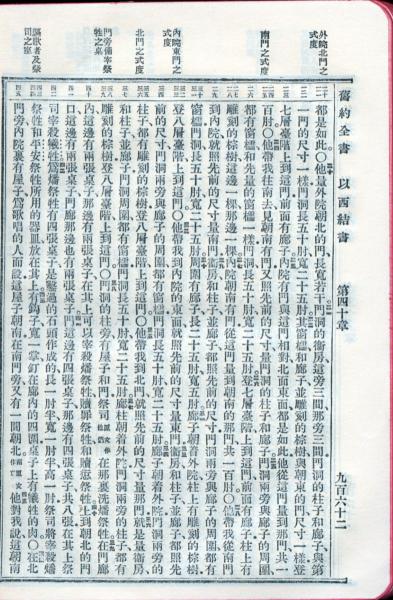 舊約全書 以西結書 第四十章 九百六十二
外院北門之式度
南門之式度
內院東門之式度
北門之式度
門旁備宰祭牲之桌
謳歌者及祭司之室
都是如此〇他量外院朝北的門、長寬若干門洞的衞房、這旁三間那旁三間門洞的柱子和廊子、與第
一門的尺寸一樣門洞長五十肘、寬二十五肘其窗櫺和廊子、並雕刻的棕樹與朝東的門尺寸一樣登
七層臺階上到這門前面有廊子內院有門與這門相對北面東面都是如此他從這門量到那門共一
百肘〇他帶我往南去見朝南有門又照先前的尺寸、量門洞的柱子和廊子門洞兩旁與廊子的周圍、
都有窗櫺和先量的窗櫺一樣門洞長五十肘、寬二十五肘登七層臺階上到這門前面有廊子柱上有
雕刻的棕樹這邊一棵那邊一棵內院朝南有門從這門量到朝南的那門共一百肘〇他帶我從南門
到內院就照先前的尺寸量南門衞房和柱子、並廊子都照先前的尺寸門洞兩旁與廊子的周圍都有
窗櫺門洞長五十肘、寬二十五肘周圍有廊子、長二十五肘寬五肘廊子朝着外院柱上有雕刻的棕樹
登八層臺階上到這門〇他帶我到內院的東面就照先前的尺寸量東門衞房和柱子、並廊子都照先
前的尺寸門洞兩旁與廊子的周圍都有窗櫺門洞長五十肘寬二十五肘廊子朝着外院門洞兩旁的
柱子、都有雕刻的棕樹登八層臺階上到這門〇他帶我到北門、就照先前的尺寸量那門就是量衞房
和柱子並廊子門洞周圍都有窗櫺門洞長五十肘寬二十五肘廊柱朝着外院門洞兩旁的柱子都有
雕刻的棕樹登八層臺階上到這門〇門洞的柱旁有屋子和門祭司在那裏洗燔祭牲在門廊
內這邊有兩張桌子那邊有兩張桌子在其上可以宰殺燔祭牲贖罪祭牲和贖愆祭牲上到朝北的門
口、這邊有兩張桌子門廊那邊也有兩張桌子門這邊有四張桌子、那邊有四張桌子共八張在其上祭
司宰殺犧牲爲燔祭牲有四張桌子是鑿過的石頭作成的長一肘半寬一肘半高一肘祭司將宰殺燔
祭牲和平安祭牲所用的器皿放在其上有鈎子寬一掌釘在廊內的四圍桌子上有犧牲的肉〇在北
門旁內院裏有屋子爲歌唱的人而設這屋子朝南在南門旁又有一間朝北他對我說這朝南